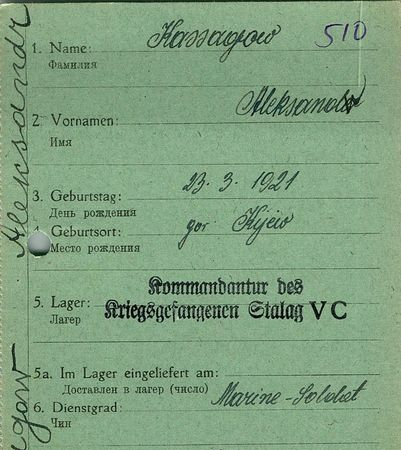 510
1. Name: Kassagow
Фамилия
2. Vornamen: Aleksandr
Имя
3. Geburtstag: 23.3.1921
День рождения
4. Geburtsort: gor Kijew
Место рождения
Kommandantur des
5. Lager: Kriegsgefangenen Stalag V C
Лагерь
5a. Im Lager eingeliefert am:
Доставлен в лагерь (число)
6. Dienstgrad: Marine-Soldat
Чин
Aleksandr